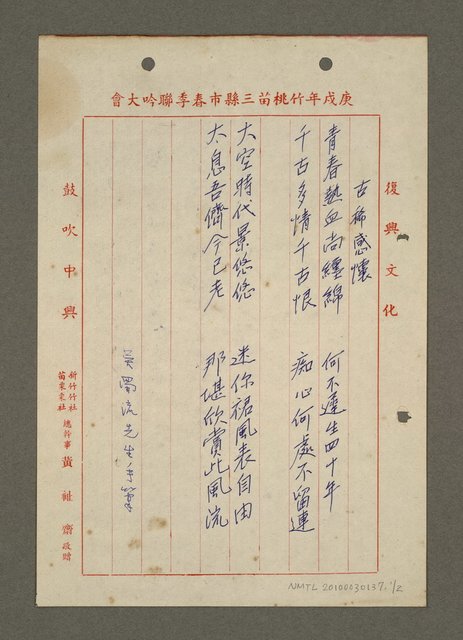 庚戌年竹桃苗三縣市春季聯吟大會
復興文化
古稀感懷
青春熱血尚纏綿　何不遲生四十年
千古多情千古恨　痴心何處不留連
太空時代景悠悠　迷你裙風表自由
太息吾儕今已老　那堪欣賞此風流
吳濁流先生手筆
鼓吹中興
新竹竹社
苗栗栗社
總幹事 黃祉齋 敬贈
NMTL 20100030137, 1/2